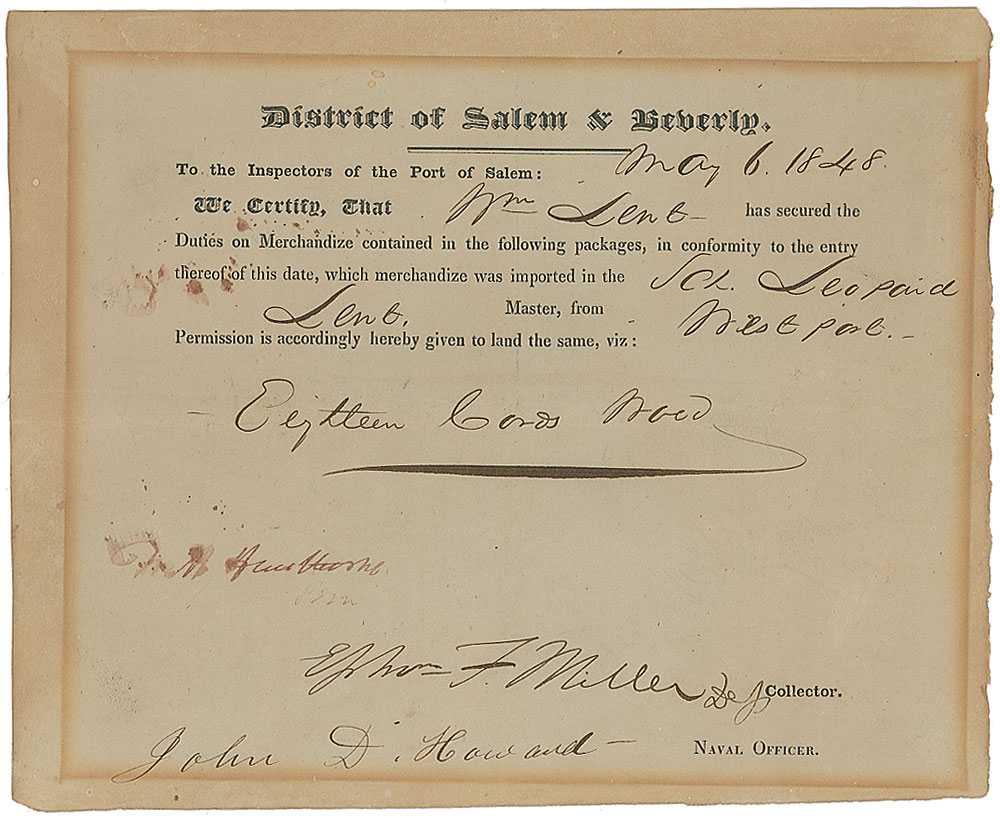 District of Salem & Beverly.
May 6. 1848.
To the Inspectors of the Port of Salem:
We Certify, That Wm Lent has secured the
Duties on Merchandize contained in the following packages, in conformity to the entry
thereof of this date, which merchandize was imported in the Sch. Leopard
Lent. Master, from Westport.
Permission is accordingly hereby given to land the same, viz:
Eighteen Cords Wood
N Hawthorne
Ephm F. Miller Dep Collector.
John D. Howard Naval Officer.